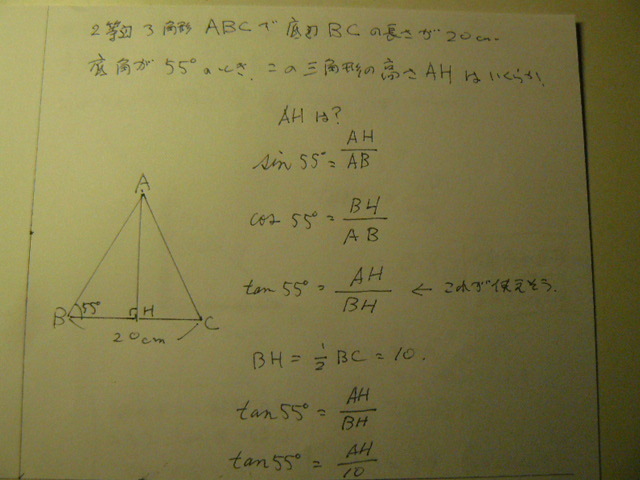 2等辺3角形 ABCで底辺BCの長さが20cm.
底角が55°のとき、この三角形の高さAHはいくらか.
AHは?
sin 55° = AH/AB
cos 55° = BH/AB
tan 55° = AH/BH ← これが使えそう.
A
B 55° H C
20cm
BH = 1/2 BC = 10.
tan 55° = AH/BH
tan 55° = AH/10